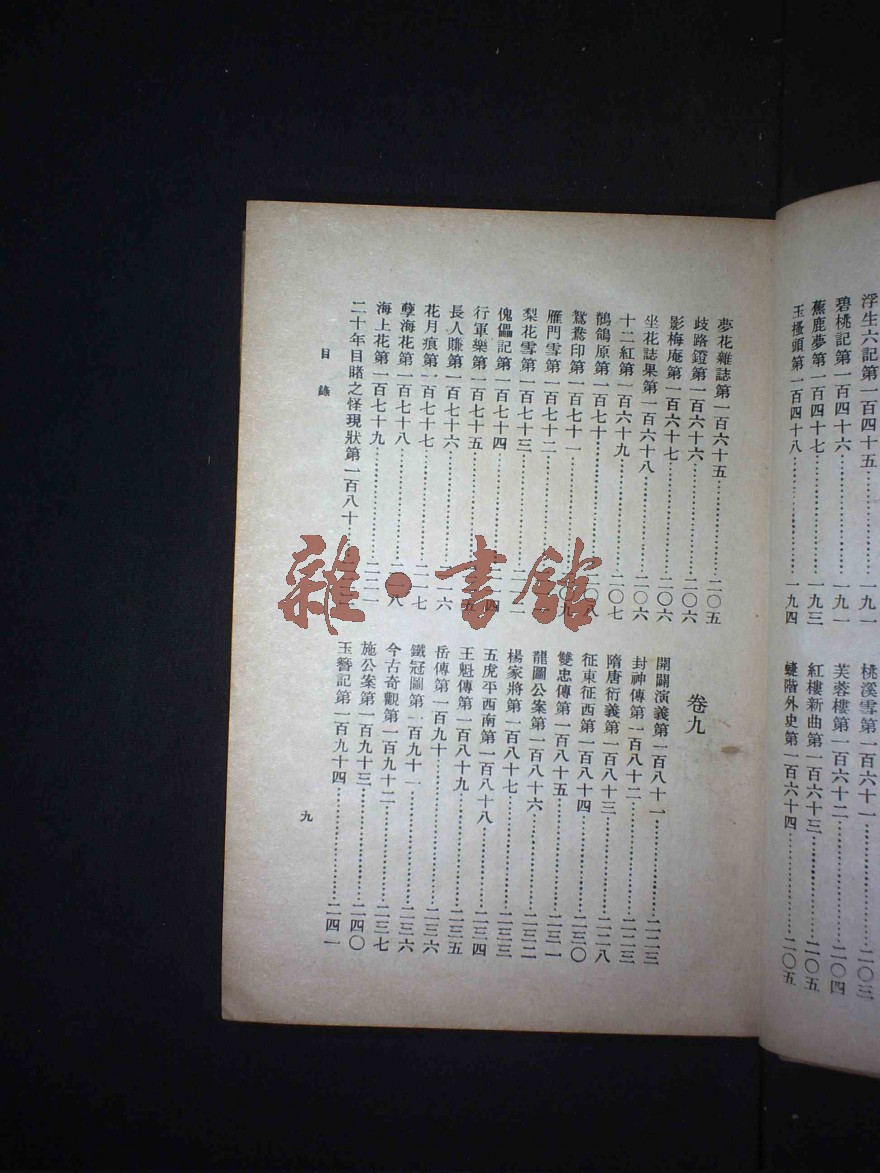 浮生六記第一百四十五……一九一
碧桃記第一百四十六……一九一
蕉鹿夢第一百四十七……一九三
玉搔頭第一百四十八……一九四
桃溪雪第一百六十一……二〇三
芙蓉樓第一百六十二……二〇四
紅樓新曲第一百六十三……二〇五
階外史第一百六十四……二〇五
夢花雜誌第一百六十五……二〇五
歧路鐙第一百六十六……二〇六
影梅庵第一百六十七……二〇六
坐花誌果第一百六十八……二〇六
十二紅第一百六十九……二〇七
鶺鴒原第一百七十……〇八
鴛鴦印第一百七十一……〇九
雁門雪第一百七十二……
梨花雪第一百七十三……
傀儡記第一百七十四……四
行軍樂第一百七十五……五
長人賺第一百七十六……一六
花月痕第一百七十七……二一七
孽海花第一百七十八……一八
海上花第一百七十九……二二一
二十年目睹之怪現狀第一百八十……
卷九
開闢演義第一百八十一……二二三
封神傳第一百八十二……二二三
隋唐衍義第一百八十三……二二八
征東征西第一百八十四……二三〇
雙忠傳第一百八十五……二三一
龍圖公案第一百八十六……二三二
楊家將第一百八十七……二三三
五虎平西南第一百八十八……二三四
王魁傳第一百八十九……二三五
岳傳第一百九十……二三六
鐵冠圖第一百九十一……二三六
今古奇觀第一百九十二……二三七
施公案第一百九十三……二四〇
玉簪記第一百九十四……二四一
目錄
九
雜·書館